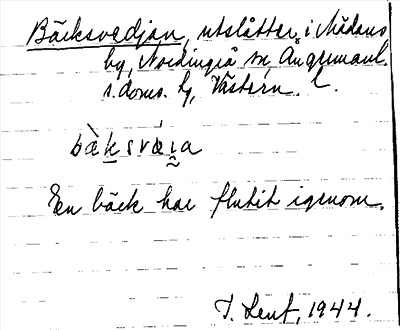 Bäcksvedjan, utslåtter i Mädans
by, Nordingrå sn, Ångermanl.
s. doms. bg, Västern. l.
bæ̀ksvæ̀ɩa
En bäck har flutit igenom.
T. Lent, 1944.